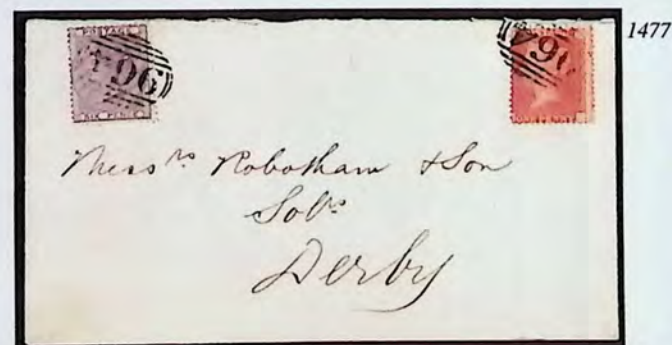 1477
POSTAGE
SIX PENCE
Messrs Robotham & Son
Solrs
Derby